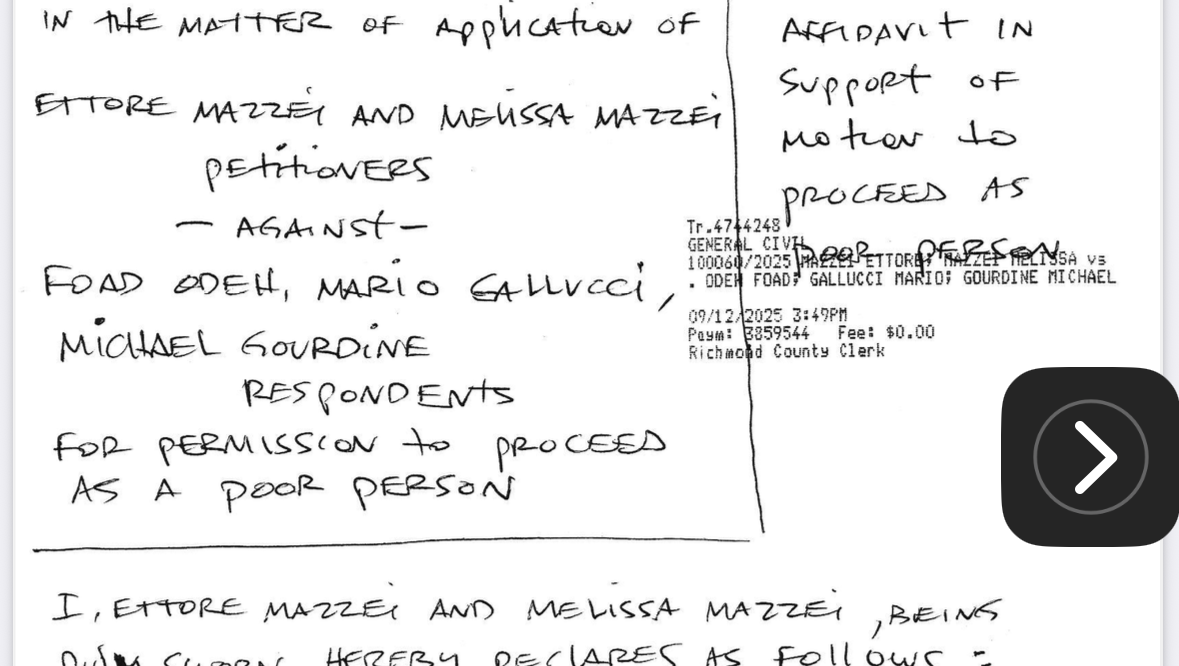 IN THE MATTER OF Application OF
ETTORE MAZZEI AND MELISSA MAZZEI
PETITIONERS
- AGAINST -
FOAD ODEH, MARIO GALLUCCI,
MICHAEL GOURDINE
RESPONDENTS
FOR PERMISSION to PROCEED
AS A POOR PERSON
AFFIDAVIT IN
SUPPORT OF
MOTION TO
PROCEED AS
POOR PERSON
Tr.4744248
GENERAL CIVIL
100060/2025 MAZZEI ETTORE; MAZZEI MELISSA vs
. ODEH FOAD; GALLUCCI MARIO; GOURDINE MICHAEL
09/12/2025 3:49PM
Paym: 3859544 Fee: $0.00
Richmond County Clerk
I, ETTORE MAZZEI AND MELISSA MAZZEI, BEING
DULY SWORN HEREBY DECLARES AS FOLLOWS: